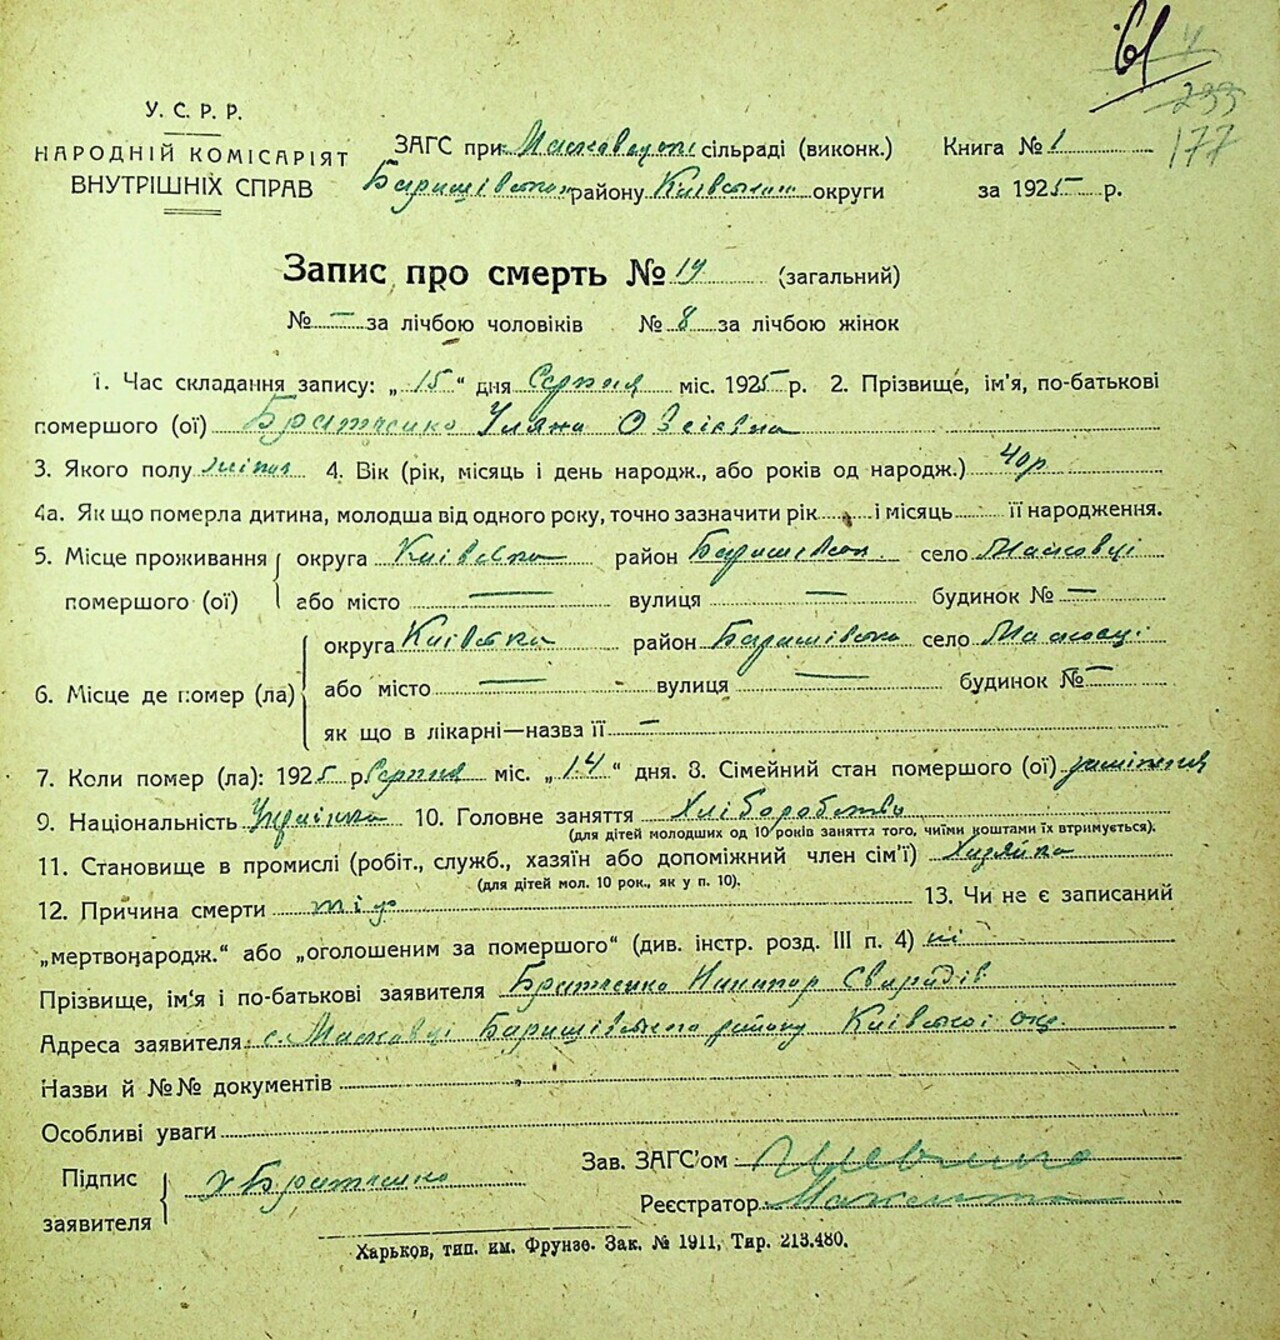 61
233
177
У. С. Р. Р.
НАРОДНІЙ КОМІСАРІЯТ
ВНУТРІШНІХ СПРАВ
ЗАГС при сільраді (виконк.)
Баришівськ. району Київськ. округи
Книга № 1
за 1925 р.
Запис про смерть № 19 (загальний)
№ — за лічбою чоловіків № 8 за лічбою жінок
1. Час складання запису: „ 15 “ дня Серпня міс. 1925 р. 2. Прізвище, ім'я, по-батькові
помершого (ої) Братченко Уляна Овсіївна
3. Якого полу жіноч 4. Вік (рік, місяць і день народж., або років од народж.) 40р
4а. Як що померла дитина, молодша від одного року, точно зазначити рік і місяць її народження.
5. Місце проживання помершого (ої)
округа Київська район Баришівськ. село Масковці
або місто — вулиця — будинок № —
6. Місце де помер (ла)
округа Київська район Баришівськ село Масковці
або місто — вулиця — будинок № —
як що в лікарні—назва її —
7. Коли помер (ла): 1925 р Серпня міс. „ 14 “ дня. 8. Сімейний стан помершого (ої) заміжня
9. Національність Українка 10. Головне заняття Хліборобство
(для дітей молодших од 10 років заняття того, чиїми коштами їх втримується).
11. Становище в промислі (робіт., служб., хазяїн або допоміжний член сім'ї) Хазяйка
(для дітей мол. 10 рок., як у п. 10).
12. Причина смерти 13. Чи не є записаний
„мертвонародж.“ або „оголошеним за помершого“ (див. інстр. розд. III п. 4) ні
Прізвище, ім'я і по-батькові заявителя Братченко Никипор
Адреса заявителя: с. Масковці Баришівського району Київської окр.
Назви й №№ документів
Особливі уваги
Підпис заявителя Братченко
Зав. ЗАГС'ом
Реєстратор
Харьков, тип. им. Фрунзе. Зак. № 1911, Тир. 213.480.